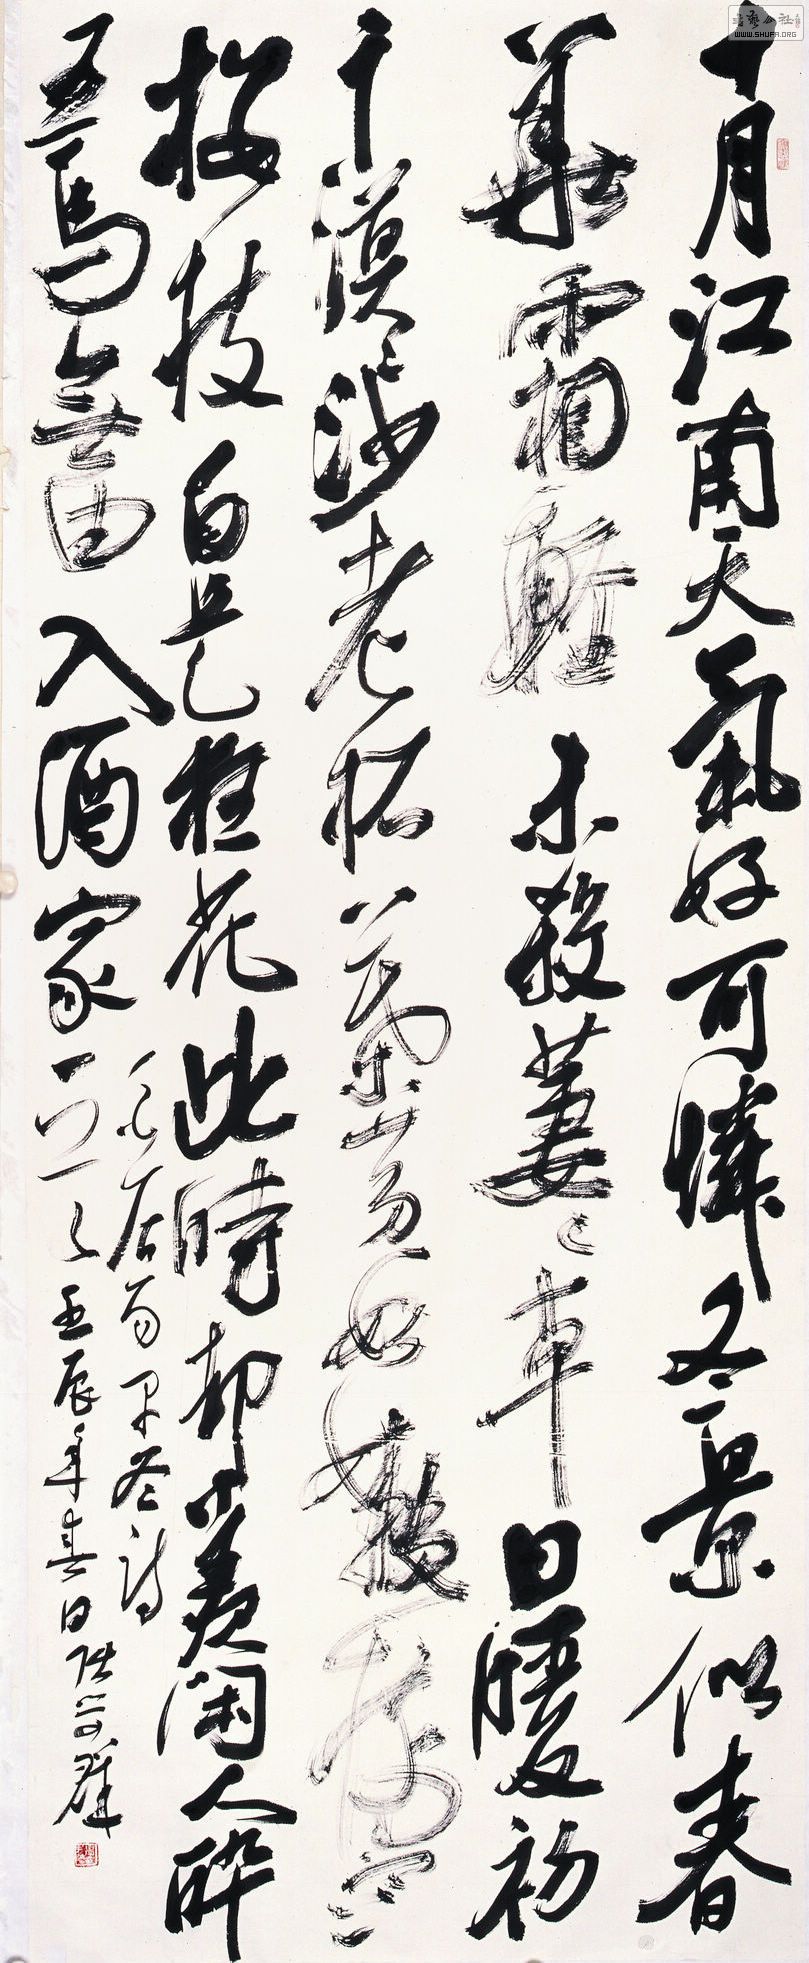 書藝公社
WWW.SHUFA.ORG
十月江南天氣好可憐冬景似春
華霜輕未殺萋〻草日暖初
干漠〻沙老柘葉黃如嫩樹寒
櫻枝白是狂花此時却羨閑人醉
五馬無由入酒家
白居易早冬詩
壬辰年春日